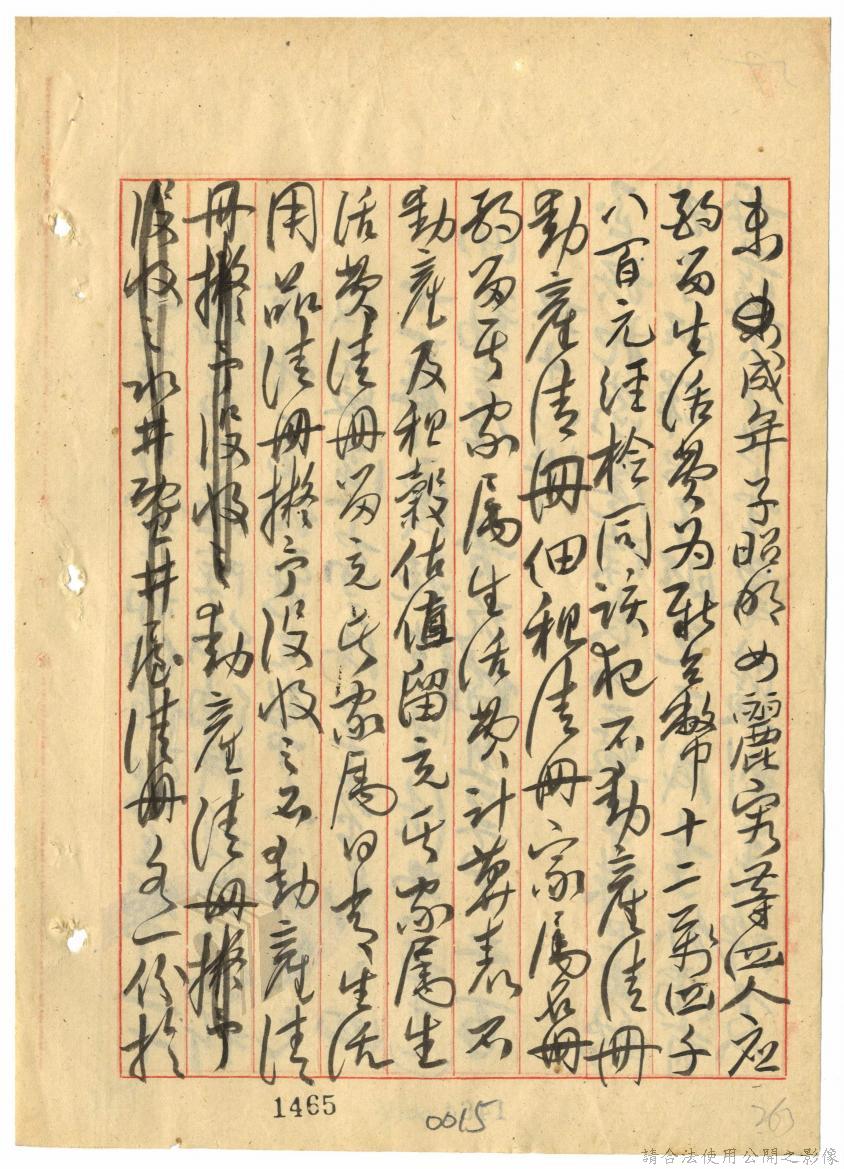 未成年子昭明女麗容等四人应
酌留生活費为新台幣十二萬四千
八百元經檢同該犯不動產清冊
動產清冊佃租清冊家属名冊
酌留其家属生活費計算表不
動產及租穀估值留充其家属生
活費清冊留充其家属日常生活
用品清冊擬予沒收之不動產清
冊擬予沒收之動產清冊擬予
沒收之水井鹽井屋清冊各一份於
1465
0015
263
請合法使用公開之影像